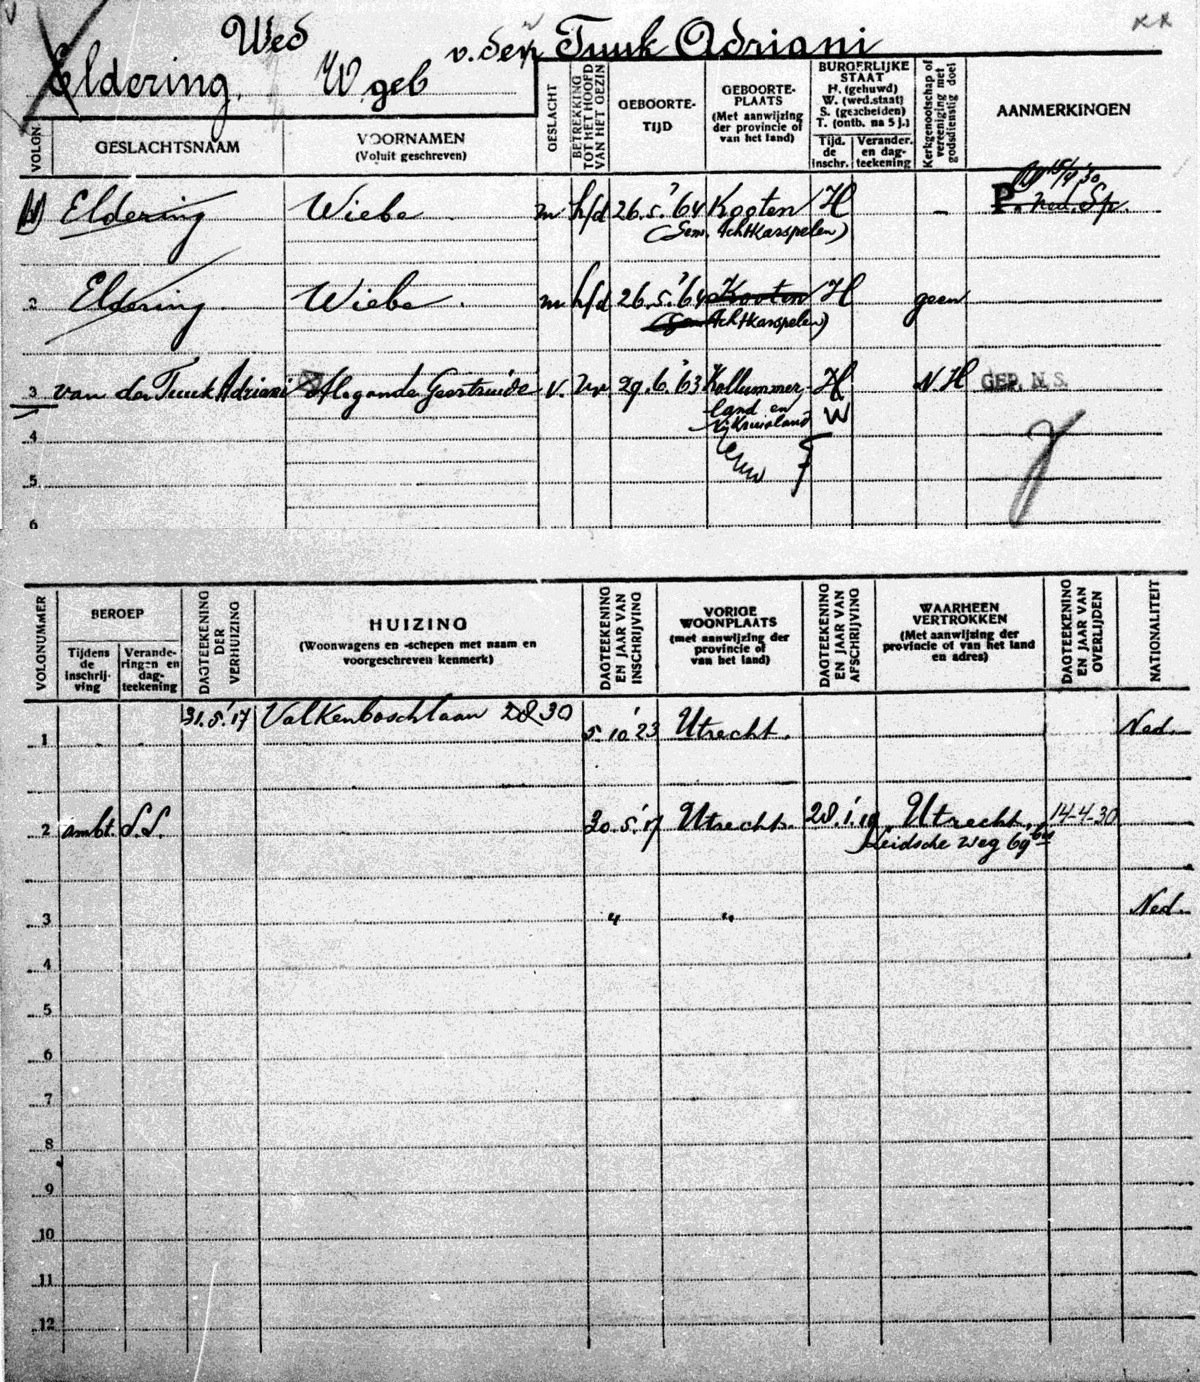 Wed v. der Tuuk Adriani
Eldering, W geb
VOLGN. GESLACHTSNAAM VOORNAMEN (Voluit geschreven) GESLACHT BETREKKING TOT HET HOOFD VAN HET GEZIN GEBOORTE-TIJD GEBOORTE-PLAATS (Met aanwijzing der provincie of van het land) BURGERLIJKE STAAT H. (gehuwd) W. (wed.staat) S. (gescheiden) T. (ontb. na 5 j.) Tijd. de inschr. Verander. en dag-teekening Kerkgenootschap of vereeniging met godsdienstig doel AANMERKINGEN
15/4 '30
1 Eldering Wiebe m hfd 26.5.'64 Kooten H - P. Ned. Sp.
(Gem. Achtkarspelen)
2 Eldering Wiebe. m hfd 26.5.'64 Kooten H geen
(Gem Achtkarspelen)
3 van der Tuuk Adriani Alegonda Geertruida v. vr 29.6.'63 Kollummer- H N.H GEP. N.S.
land en W
Nijkruisland
4
5
6
VOLGNUMMER BEROEP Tijdens de inschrij-ving Verande-ringen en dag-teekening DAGTEEKENING DER VERHUIZING HUIZING (Woonwagens en -schepen met naam en voorgeschreven kenmerk) DAGTEEKENING EN JAAR VAN INSCHRIJVING VORIGE WOONPLAATS (met aanwijzing der provincie of van het land) DAGTEEKENING EN JAAR VAN AFSCHRIJVING WAARHEEN VERTROKKEN (Met aanwijzing der provincie of van het land en adres) DAGTEEKENING EN JAAR VAN OVERLIJDEN NATIONALITEIT
31.5.'17 Valkenboschlaan 2
1 5.10'23 Utrecht. Ned.
2 ambt. S.S. 30.5.'17 Utrecht. 28.1.'19 Utrecht. 14-4-30
Leidsche weg 69 bis
3 " " Ned.
4
5
6
7
8
9
10
11
12